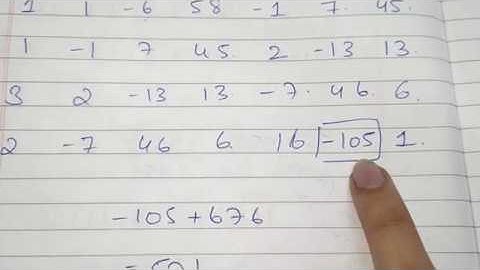 1 1 -6 58 -1 7. 45.
1 -1 7 45. 2 -13 13.
3 2 -13 13 -7. 46. 6.
2 -7 46 6. 16 -105 1.
-105+676